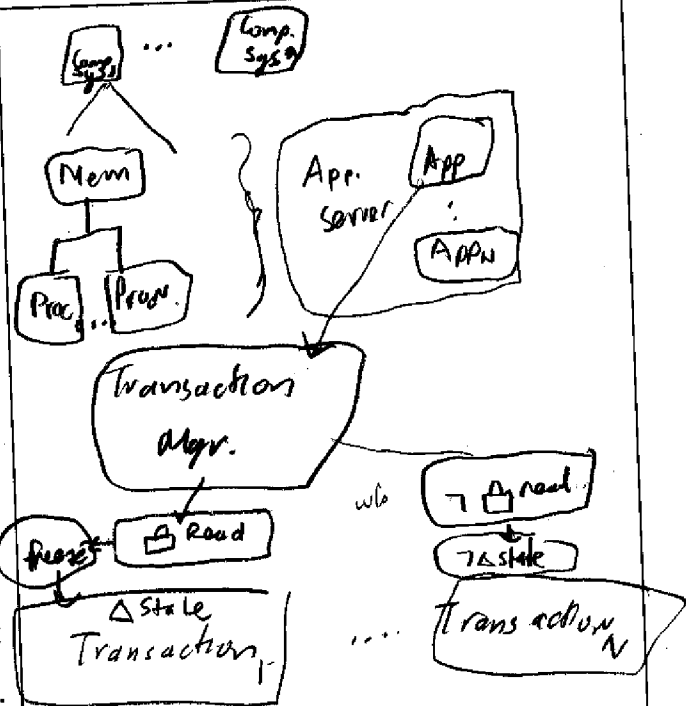 Comp.
Sys1
...
Comp.
Sys N
Mem
Proc.
...
Proc N.
App.
Server
App
:
App N
Transaction
Mgr.
w/o
¬ read
¬ Δ state
Read
freeze
Δ State
Transaction 1
....
Transaction N